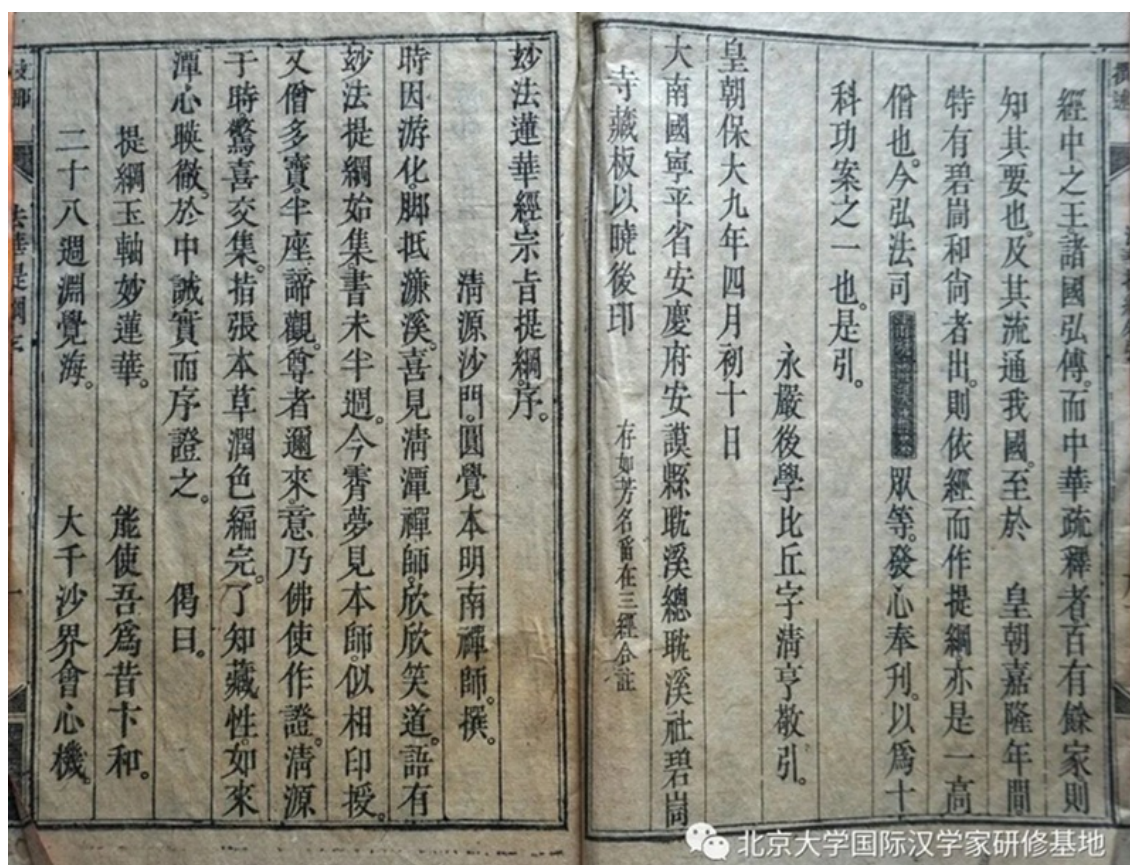 經中之王諸國弘傳。而中華疏釋者百有餘家則
知其要也。及其流通我國。至於 皇朝嘉隆年間
特有碧峝和尙者出。則依經而作提綱亦是一高
僧也。今弘法司 眾等。發心奉刊。以爲十
科功案之一也。是引。
永嚴後學比丘字清亨敬引。
皇朝保大九年四月初十日
大南國寧平省安慶府安謨縣耽溪總耽溪社碧峝
寺藏板以曉後印
存如芳名畱在三經合註
玅法蓮華經宗旨提綱。序。
清源沙門。圓覺本明南禪師。撰。
時因游化。脚抵濂溪。喜見清潭禪師。欣欣笑道。語有
玅法提綱始集。書未半週。今霄夢見本師。似相印授。
又僧多寶。半座諦觀。尊者邇來。意乃佛使作證。清源
于時驚喜交集。措張本草潤色編完。了知藏性。如來
潭心暎徹。於中誠實而序證之。 偈曰。
提綱玉軸妙蓮華。 能使吾爲昔卞和。
二十八週淵覺海。 大千沙界會心機。
法華提綱序
北京大学国际汉学家研修基地